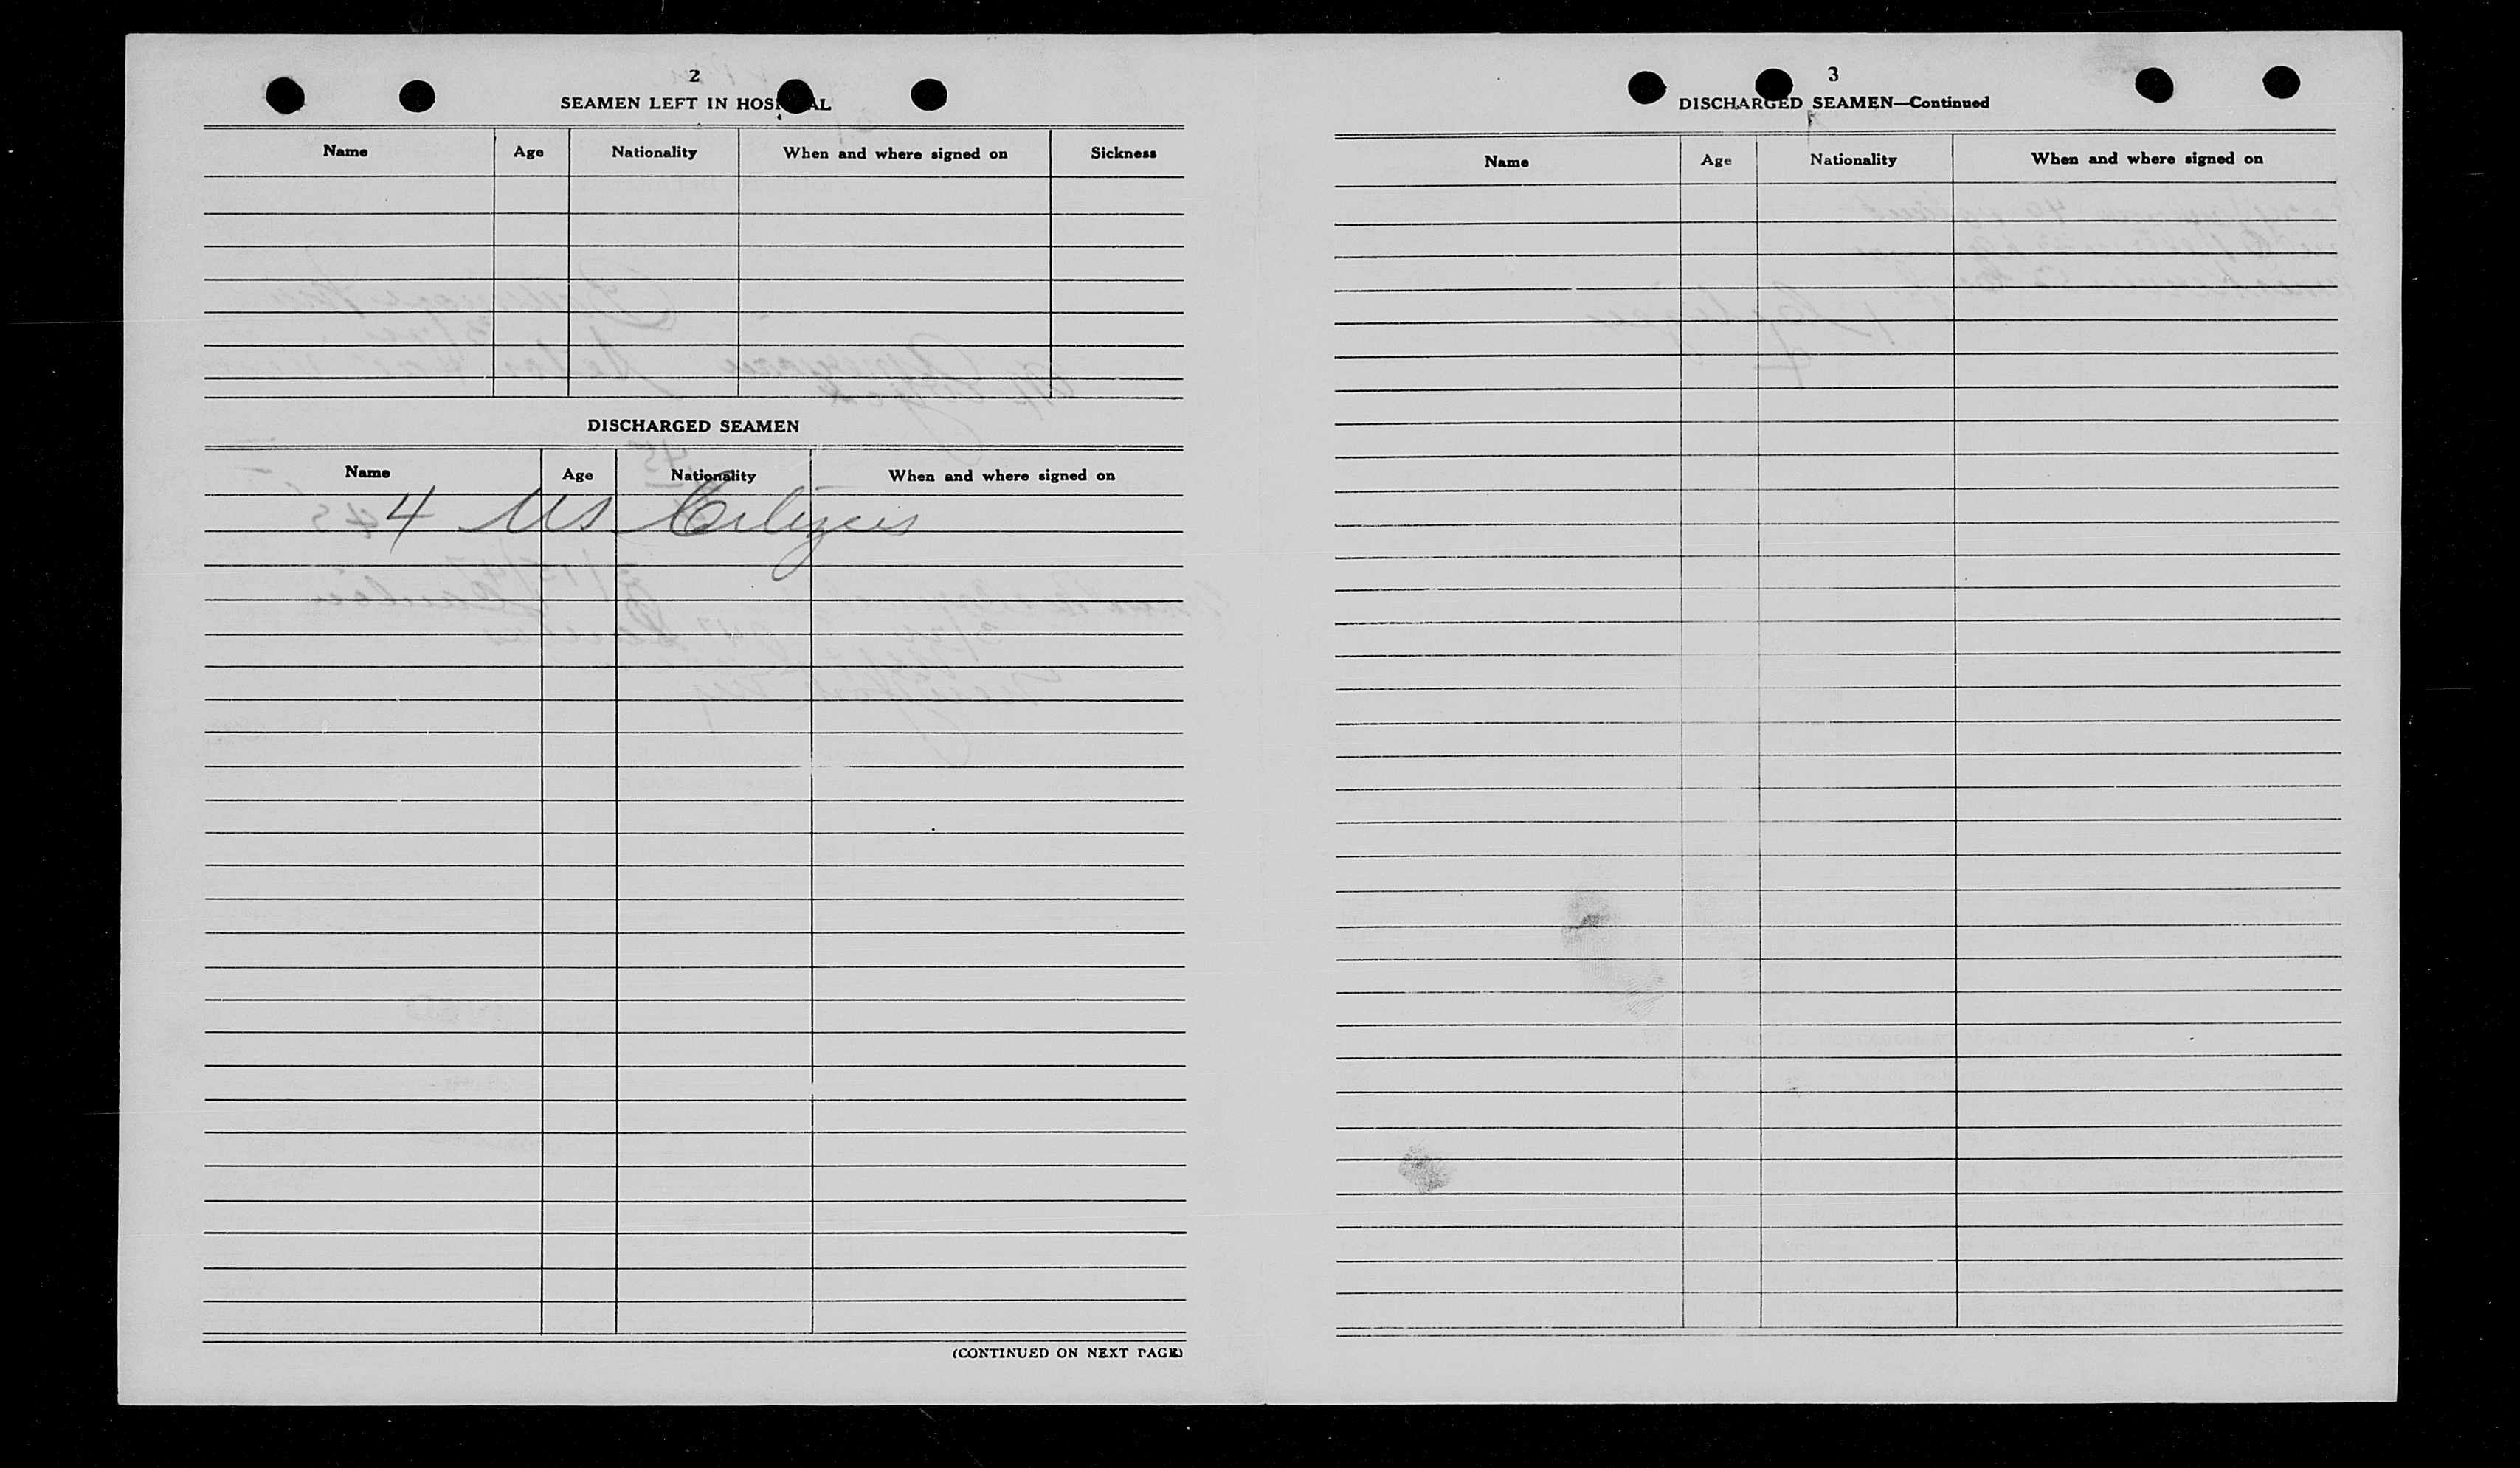 2
SEAMEN LEFT IN HOSPITAL
Name Age Nationality When and where signed on Sickness
DISCHARGED SEAMEN
Name Age Nationality When and where signed on
4 US Citizens
(CONTINUED ON NEXT PAGE)
3
DISCHARGED SEAMEN—Continued
Name Age Nationality When and where signed on